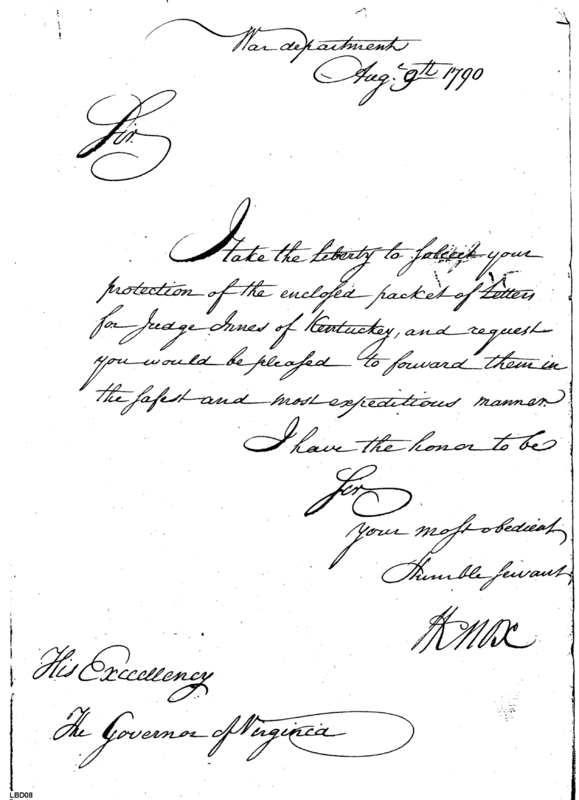 War department
Augt. 9th 1790
Sir.
I take the liberty to solicit your
protection of the enclosed packet of letters
for Judge Innes of Kentuckey, and request
you would be pleased to forward them in
the safest and most expeditious manner.
I have the honor to be
Sir
your most obedient
Humble servant,
HKnox
His Excellency
The Governor of Virginia
LBD08